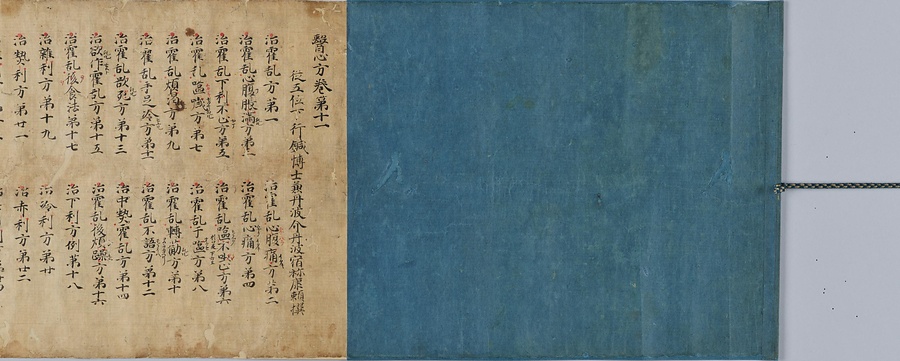 醫心方巻第十一
従五位下行鍼博士兼丹波介丹波宿祢康頼撰
治霍乱方第一
治霍乱心腹痛方第二
治霍乱心腹脹満方第三
治霍乱心痛方第四
治霍乱下利不止方第五
治霍乱嘔吐不止方第六
治霍乱噦方第七
治霍乱干嘔方第八
治霍乱煩渇方第九
治霍乱轉筋方第十
治霍乱手足冷方第十一
治霍乱不語方第十二
治霍乱欲死方第十三
治中熱霍乱方第十四
治欲作霍乱方第十五
治霍乱後煩躁方第十六
治霍乱後食法第十七
治下利方例第十八
治雜利方第十九
治冷利方第廿
治熱利方第廿一
治赤利方第廿二